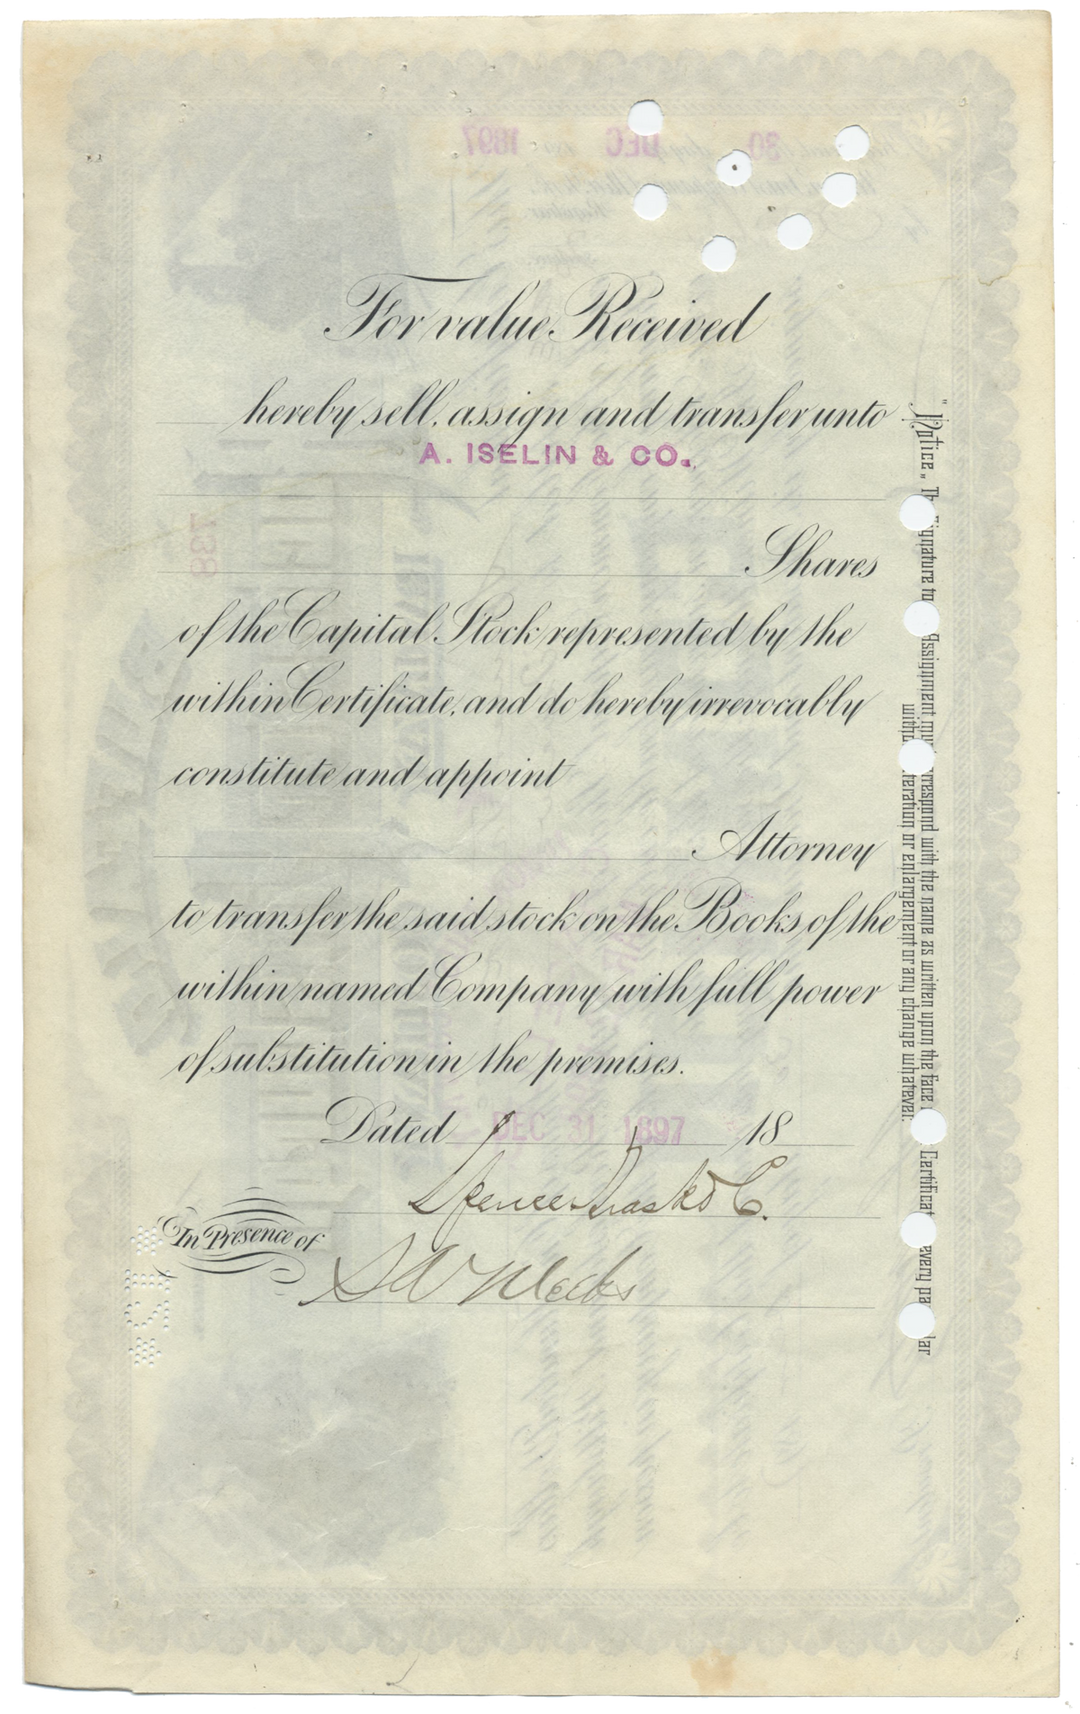 For value Received
hereby sell, assign and transfer unto
A. ISELIN & CO.
Shares
of the Capital Stock represented by the
within Certificate, and do hereby irrevocably
constitute and appoint
Attorney
to transfer the said stock on the Books of the
within named Company with full power
of substitution in the premises.
Dated DEC 31 1897 18
Spencer Trask & Co.
In Presence of
"Notice." Th Signature to Assignment mu rrespond with the name as written upon the face Certificat every pa lar
with teration or enlargement or any change whatever.
DEC 30 1897
138